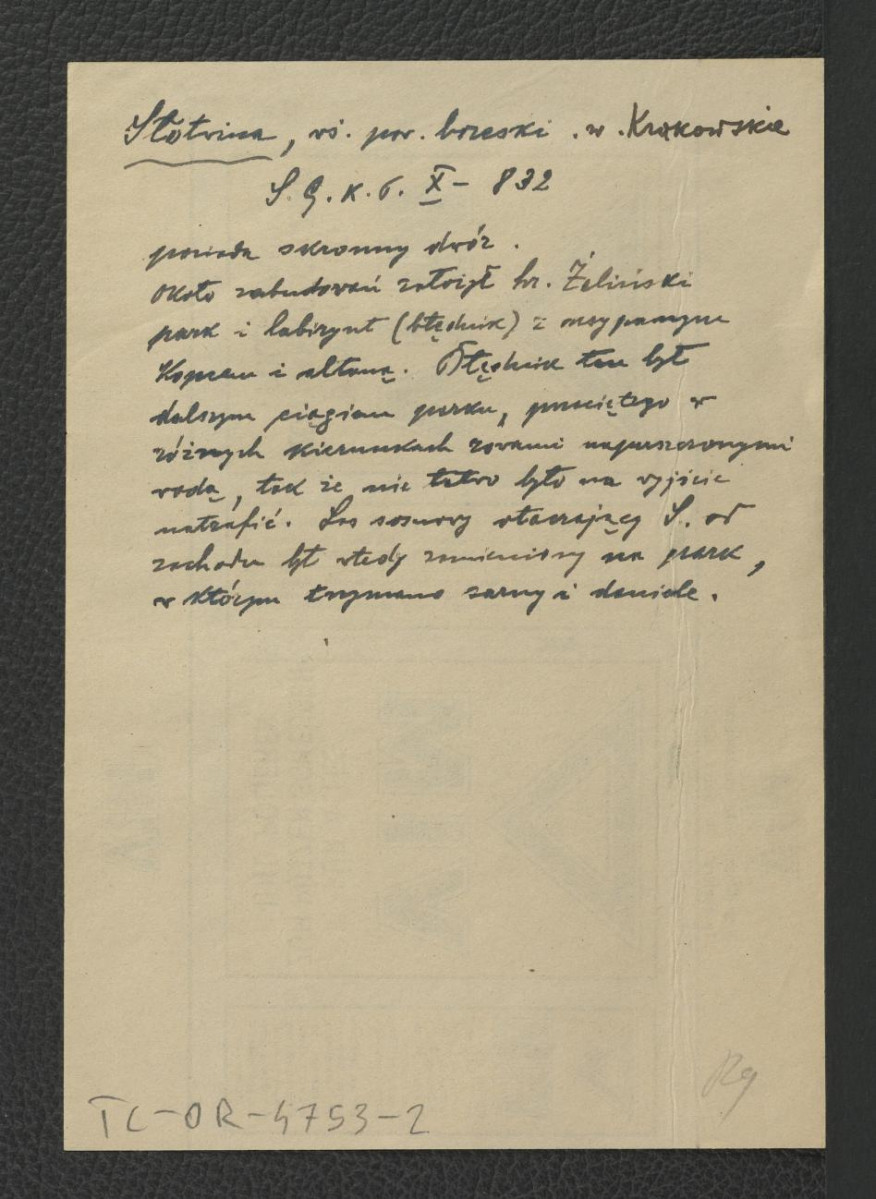 Słotwina, wś. pow. brzeski . w . Krakowskie
S. G. K. P. X – 832
posiada skromny dwór .
Około zabudowań założył hr. Żeliński
park i labirynt (błędnik) z usypanym
Kopcem i altaną. Błędnik ten był
dalszym ciągiem parku, przeciętego w
różnych kierunkach rowami napuszczonymi
wodą, tak że nie łatwo było na wyjście
natrafić. Las sosnowy otaczający S. od
zachodu był wtedy zamieniony na park,
w którym trzymano sarny i daniele.
Rg
TC-OR-4753-2